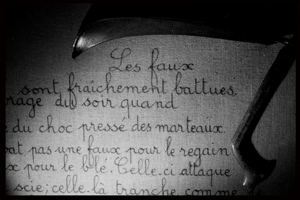 Les faux
sont fraîchement battues.
rage du soir quand
e du choc pressé des marteaux.
bat pas une faux pour le regain
x pour le blé. Celle.ci attaque
scie; celle.là tranche comme